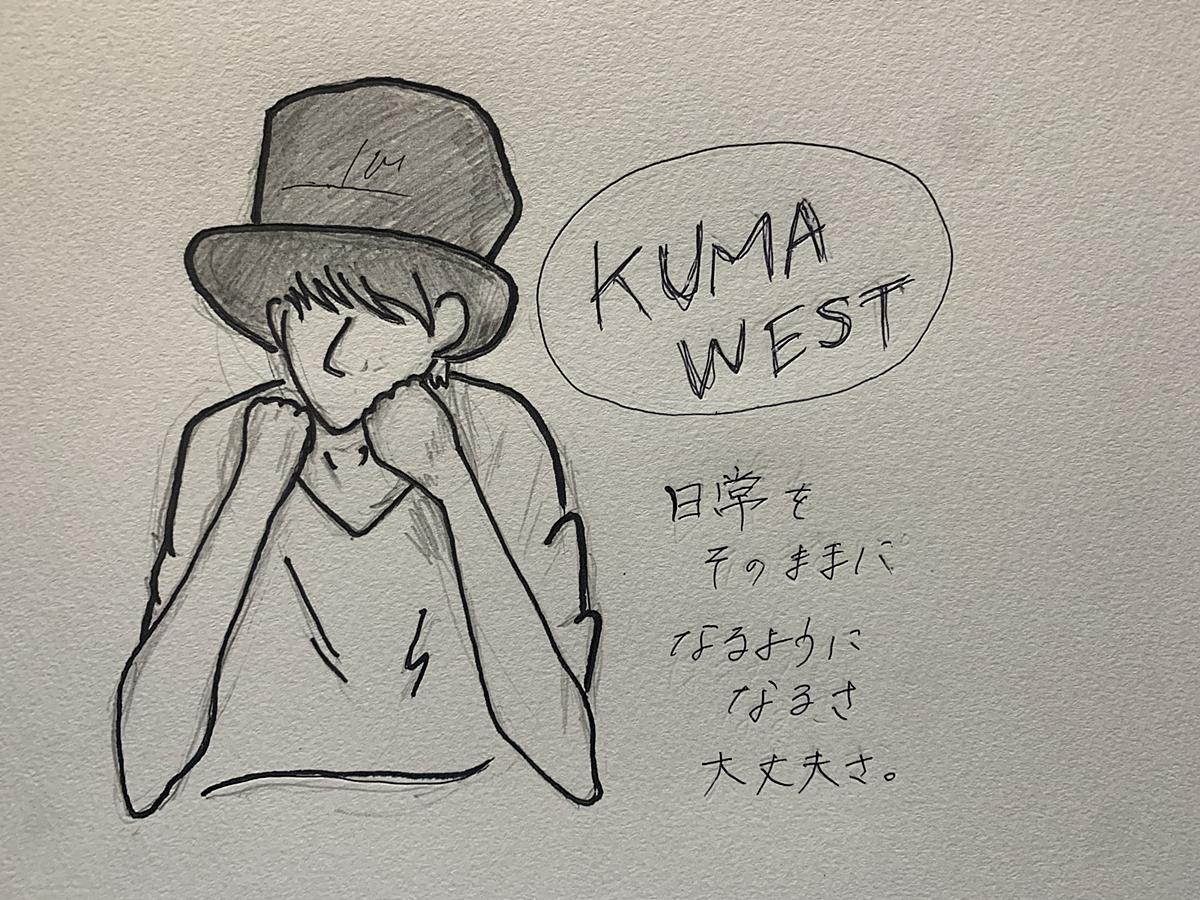 KUMA
WEST
日常を
そのままに
なるように
なるさ
大丈夫さ。